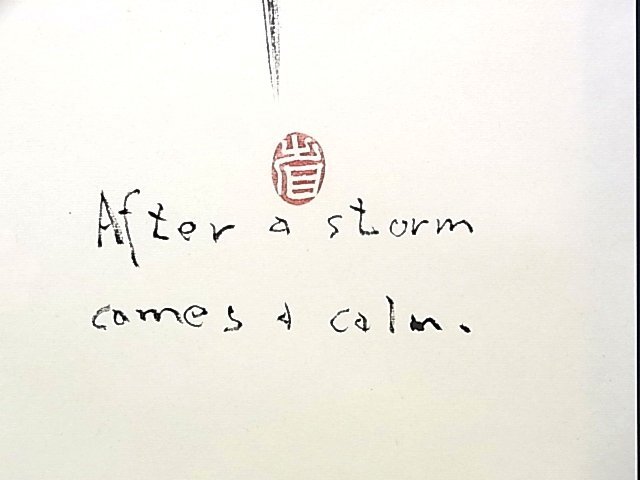 After a storm
comes a calm.